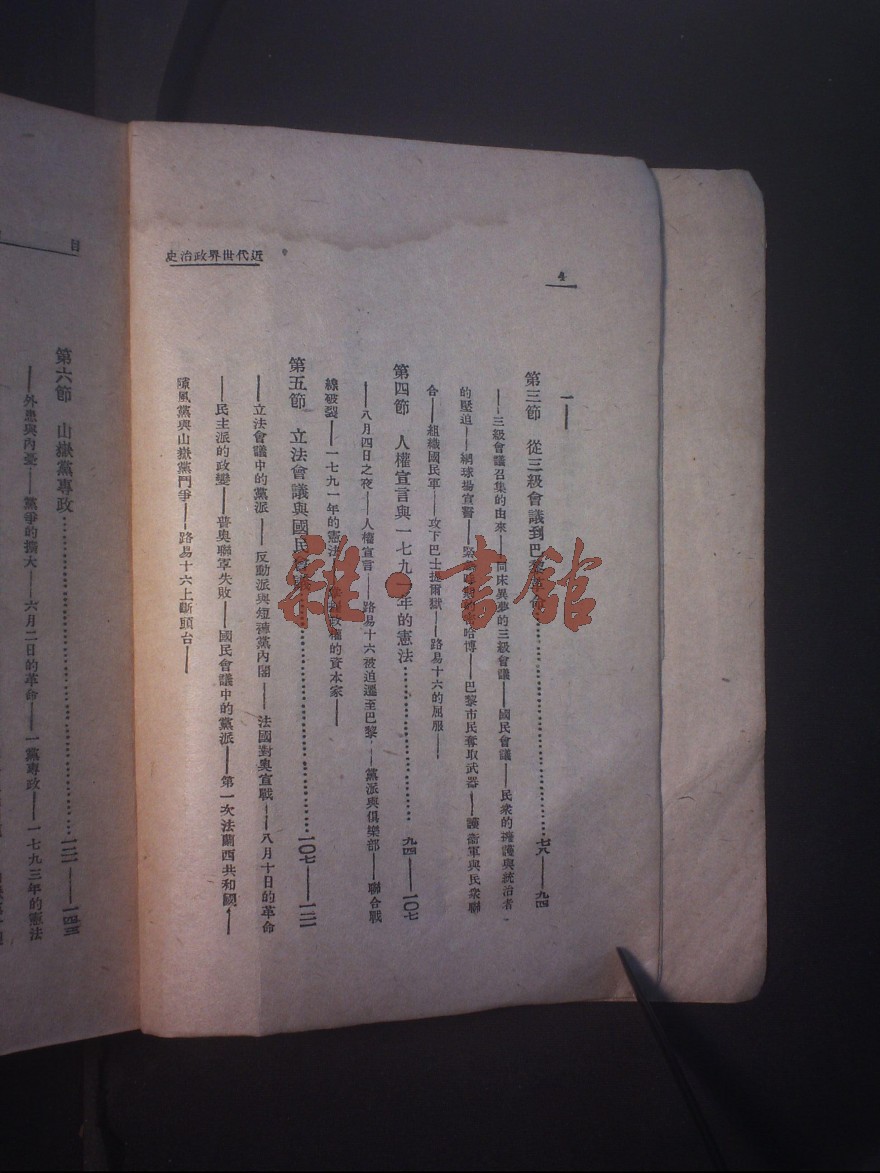 近代世界政治史
4
一——
第三節 從三級會議到巴黎革命……七八——九四
——三級會議召集的由來——同床異夢的三級會議——國民會議——民衆的擁護與統治者
的壓迫——網球場宣誓——哈博——巴黎市民奪取武器——護衞軍與民衆聯
合——組織國民軍——攻下巴士提爾獄——路易十六的屈服——
第四節 人權宣言與一七九一年的憲法……九四——一〇七
——八月四日之夜——人權宣言——路易十六被迫遷至巴黎——黨派與俱樂部——聯合戰
線破裂——一七九一年的憲法——政權的資本家——
第五節 立法會議與國民會議……一〇七——一二一
——立法會議中的黨派——反動派與短褲黨內閣——法國對奧宣戰——八月十日的革命
——民主派的政變——普奧聯軍失敗——國民會議中的黨派——第一次法蘭西共和國——
隆風黨與山嶽黨鬥爭——路易十六上斷頭台——
目
第六節 山嶽黨專政……一二一——一四三
——外患與內憂——黨爭的擴大——六月二日的革命——一黨專政——一七九三年的憲法
雜·書館